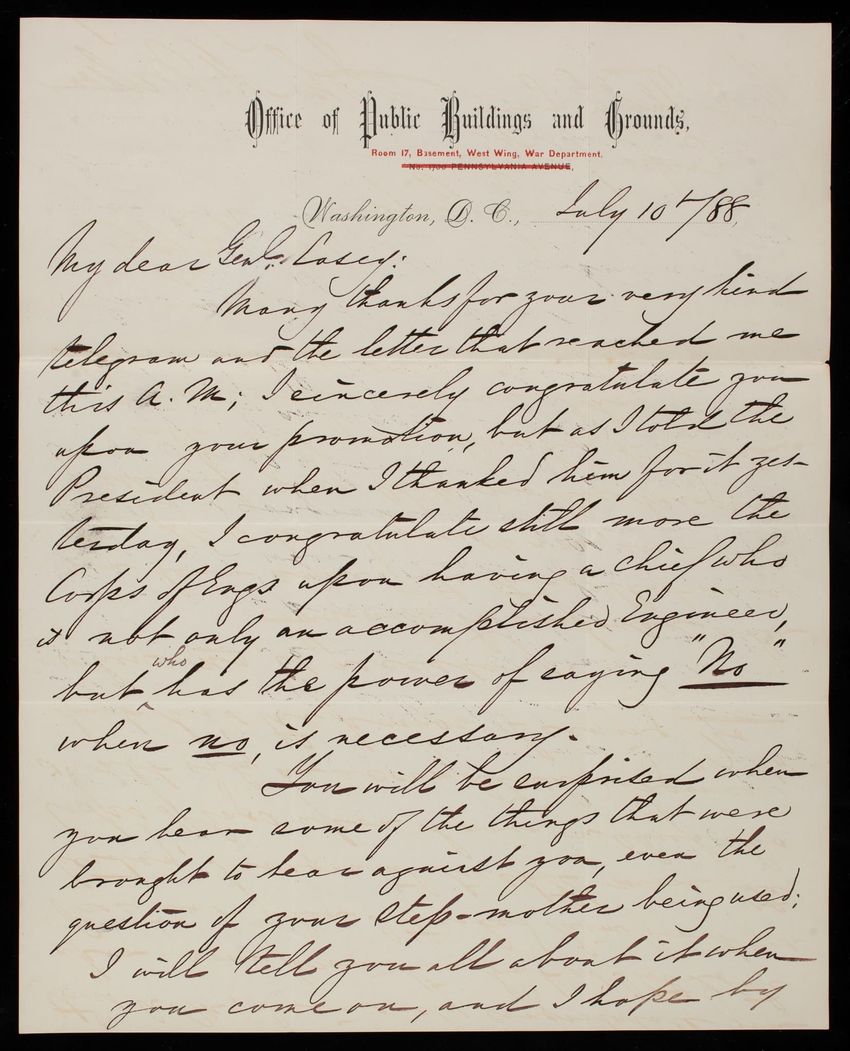 Office of Public Buildings and Grounds,
Room 17, Basement, West Wing, War Department.
No. 1700 PENNSYLVANIA AVENUE,
Washington, D. C., July 10th/88,
My dear Genl. Casey:
Many thanks for your very kind
telegram and the letter that reached me
this A.M; I sincerely congratulate you
upon your promotion, but as I told the
President when I thanked him for it yes-
terday, I congratulate still more the
Corps of Engs upon having a chief who
is not only an accomplished Engineer,
but who has the power of saying "No"
when no, is necessary.
You will be surprised when
you hear some of the things that were
brought to bear against you, even the
question of your step-mother being used;
I will tell you all about it when
you come on, and I hope by